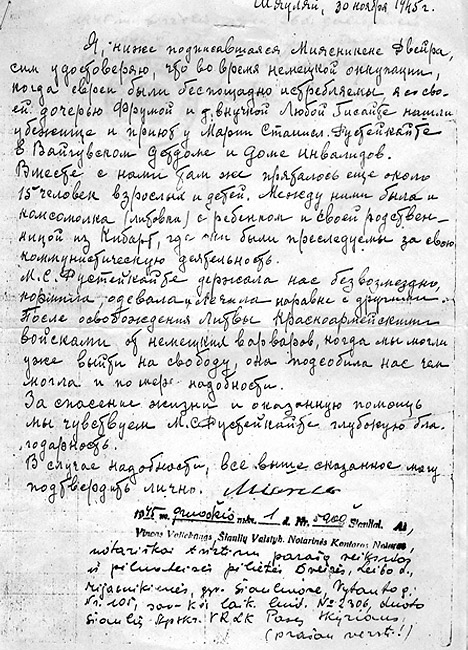 Шяуляй, 30 ноября 1945 г.
Я, нижеподписавшаяся Миясникене Двейра,
сим удостоверяю, что во время немецкой оккупации,
когда евреи были беспощадно истребляемы я со сво-
ей дочерью Фрумой и внучкой Любой Гисайте нашли
убежище и приют у Марии Станисл. Рустейкайте
в Вайгувском Детдоме и Доме инвалидов.
Вместе с нами там же пряталось еще около
15 человек взрослых и детей. Между ними была и
комсомолка (литовка) с ребенком и своей родствен-
ницой из Кибарт, где они были преследуемы за свою
коммунистическую деятельность.
М.С. Рустейкайте держала нас безвозмездно,
кормила, одевала и лечила наравне с другими.
После освобождения Литвы Красноармейскими
войсками от немецких варваров, когда мы могли
уже выйти на свободу, она подсобила нас чем
могла и по мере надобности.
За спасение жизни и оказанную помощь
мы чувствуем М.С. Рустейкайте глубокую бла-
годарность.
В случае надобности, все выше сказанное могу
подтвердить лично.
1945 m. gruodžio mėn. 1 d. Nr. 5909 Šiauliai. Aš,
Vincas Valiekauga, Šiaulių Valstyb. Notarinės Kontoros Notaras,
notariškai tvirtinu parašą veiksmą
ir pilnudeisės pilietės Dveiros, Leibo d.,
Mijasnikienės, gyv. Šiauliuose, Vytauto g.
Nr. 101, laik. liud. № 2306, duoto
Šiaulių VRLK Pasų Skyriaus
(prašau versti!)